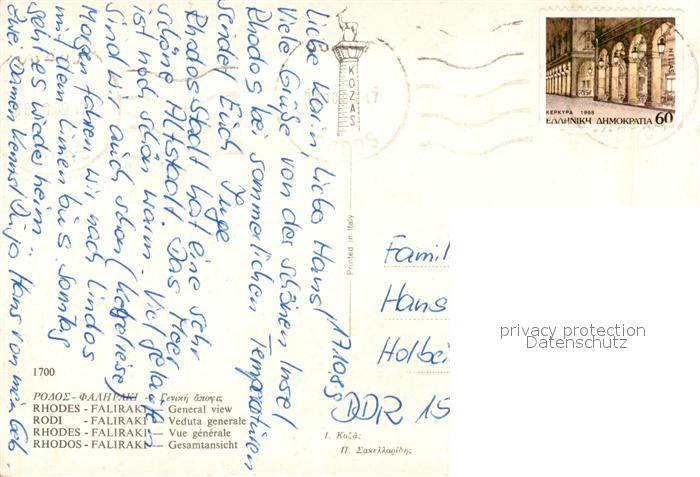 Liebe Karin, liebe Hans!
17.10.89
Viele Grüße von der schönen Insel
Rhodos bei sommerlichen Temperaturen
sendet Euch Inge
Rhodos Stadt hat eine sehr
schöne Altstadt. Das Meer
ist noch schön warm. Viel gelaufen
sind wir auch schon
Morgen fahren wir nach Lindos
mit dem Linienbus. Sonntag
geht es wieder heim.
zwei Damen kennst Du ja Hans von mein Geb.
KOZAS
ΚΕΡΚΥΡΑ 1988
ΕΛΛΗΝΙΚΗ ΔΗΜΟΚΡΑΤΙΑ 60
Printed in Italy
Famil
Hans
Holbei
DDR 15
privacy protection
Datenschutz
1700
ΡΟΔΟΣ - ΦΑΛΗΡΑΚΙ - Γενική ἄποψις
RHODES - FALIRAKI — General view
RODI - FALIRAKI — Veduta generale
RHODES - FALIRAKI — Vue générale
RHODOS - FALIRAKI — Gesamtansicht
Ι. Κοζᾶς
Π. Σακελλαρίδης